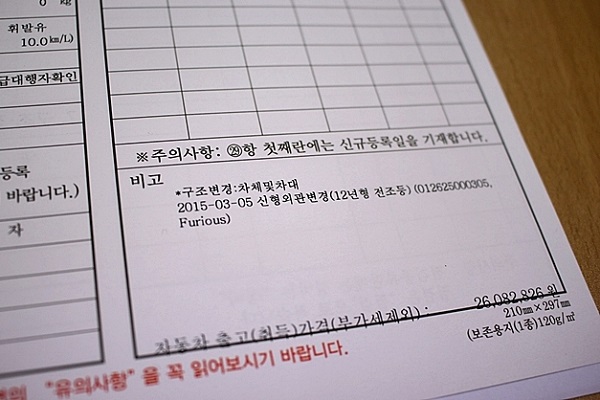 0 kg
휘발유
10.0㎞/L)
급대행자확인
등록
바랍니다.)
자
※주의사항: ㉙항 첫째란에는 신규등록일을 기재합니다.
비고
*구조변경:차체및차대
2015-03-05 신형외관변경(12년형 전조등) (012625000305,
Furious)
자동차 출고(취득)가격(부가세제외) : 26,082,826 원
210㎜×297㎜
(보존용지(1종)120g/㎡
"유의사항" 을 꼭 읽어보시기 바랍니다.